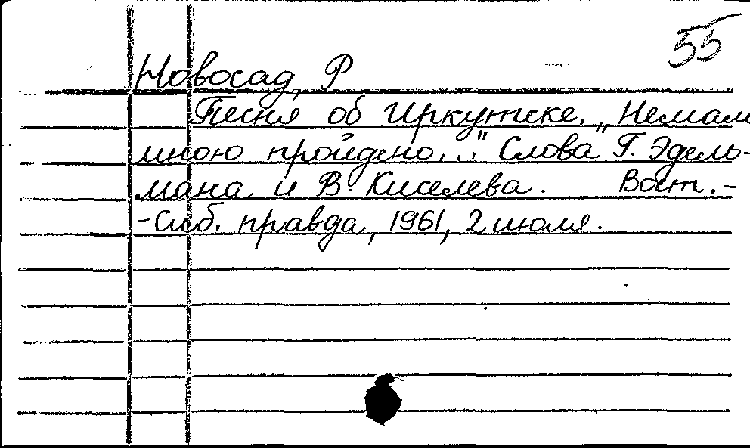 55
Новосад, Р
Песня об Иркутске. „Немало
мною пройдено..." Слова Г. Эдель-
мана и В Киселева. Вост.-
-Сиб. правда, 1961, 2 июля.